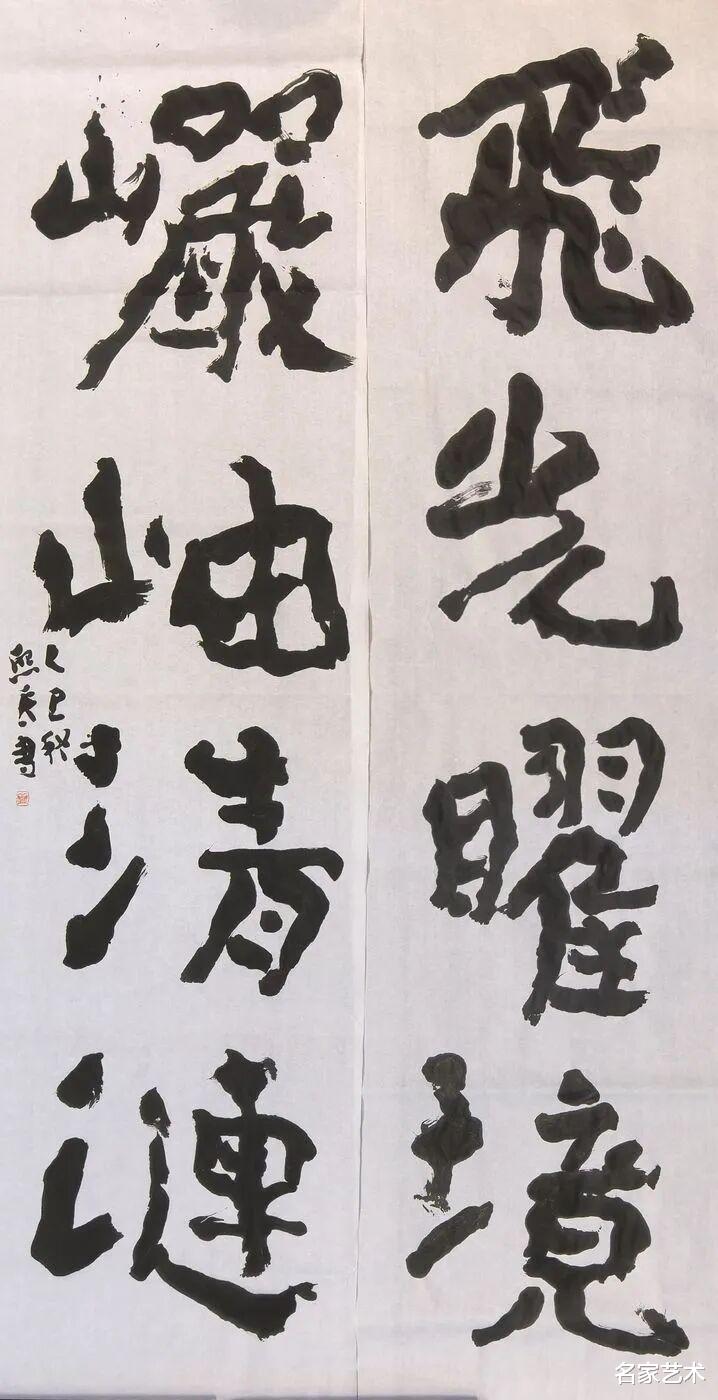 飛光曜境
巗岫清漣
乙巳秋
熙貴書
名家艺术